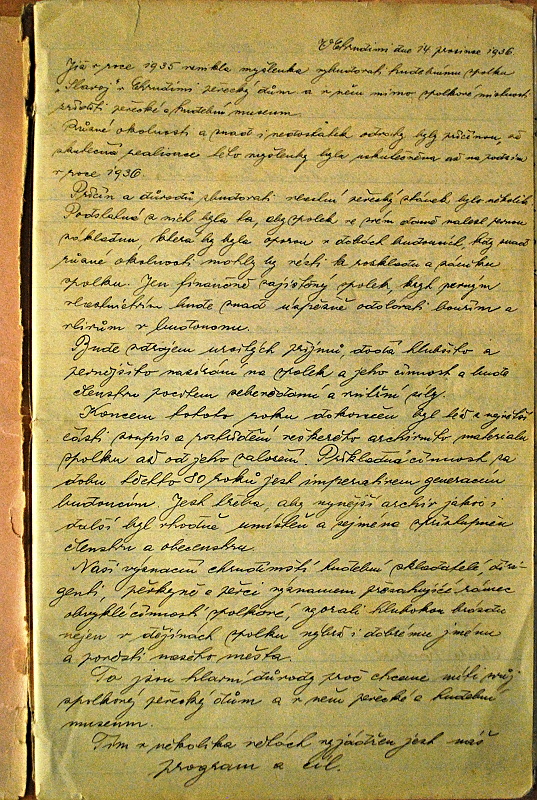 V Chrudimi dne 14. prosince 1936.
Již v roce 1935 vznikla myšlenka vybudovati hudebnímu spolku
"Slavoj" v Chrudimi pěvecký dům a v něm mimo spolkové místnosti
zříditi pěvecké a hudební museum.
Různé okolnosti a snad i nedostatek odvahy byly příčinou, že
skutečná realisace této myšlenky byla uskutečněna až na podzim
v roce 1936.
Příčin a důvodů zbudovati vlastní pěvecký stánek, bylo několik.
Podstatná z nich byla ta, aby spolek ve svém domě nalezl pevnou
základnu, která by byla oporou v dobách budoucích, kdy snad
různé okolnosti mohly by vésti k rozkladu a zániku
spolku. Jen finančně zajištěný spolek krytý pevným
vlastnictvím bude snad úspěšně odolávati bouřím a
vlivům v budoucnu.
Bude zdrojem určitých příjmů, dodá hlubšího a
pevnějšího nazírání na spolek a jeho činnost a bude
členstvu pocitem sebevědomí a vnitřní síly.
Koncem tohoto roku dokončen byl též z největší
části soupis a roztřídění veškerého archivního materialu
spolku až od jeho založení. Příkladná činnost za
dobu těchto 80 roků jest imperativem generacím
budoucím. Jest třeba, aby nynější archiv jakož i
další byl vhodně umístěn a zejména přístupněn
členstvu a obecenstvu.
Naši význační chrudimští hudební skladatelé, diri-
genti, pěvkyně a pěvci významem přesahující rámec
obvyklé činnosti spolkové, vyorali hlubokou brázdu
nejen v dějinách spolku nýbrž i dobrému jménu
a pověsti našeho města.
To jsou hlavní důvody proč chceme míti svůj
spolkový pěvecký dům a v něm pěvecké a hudební
museum.
Tím v několika větách vyjádřen jest náš
program a cíl.